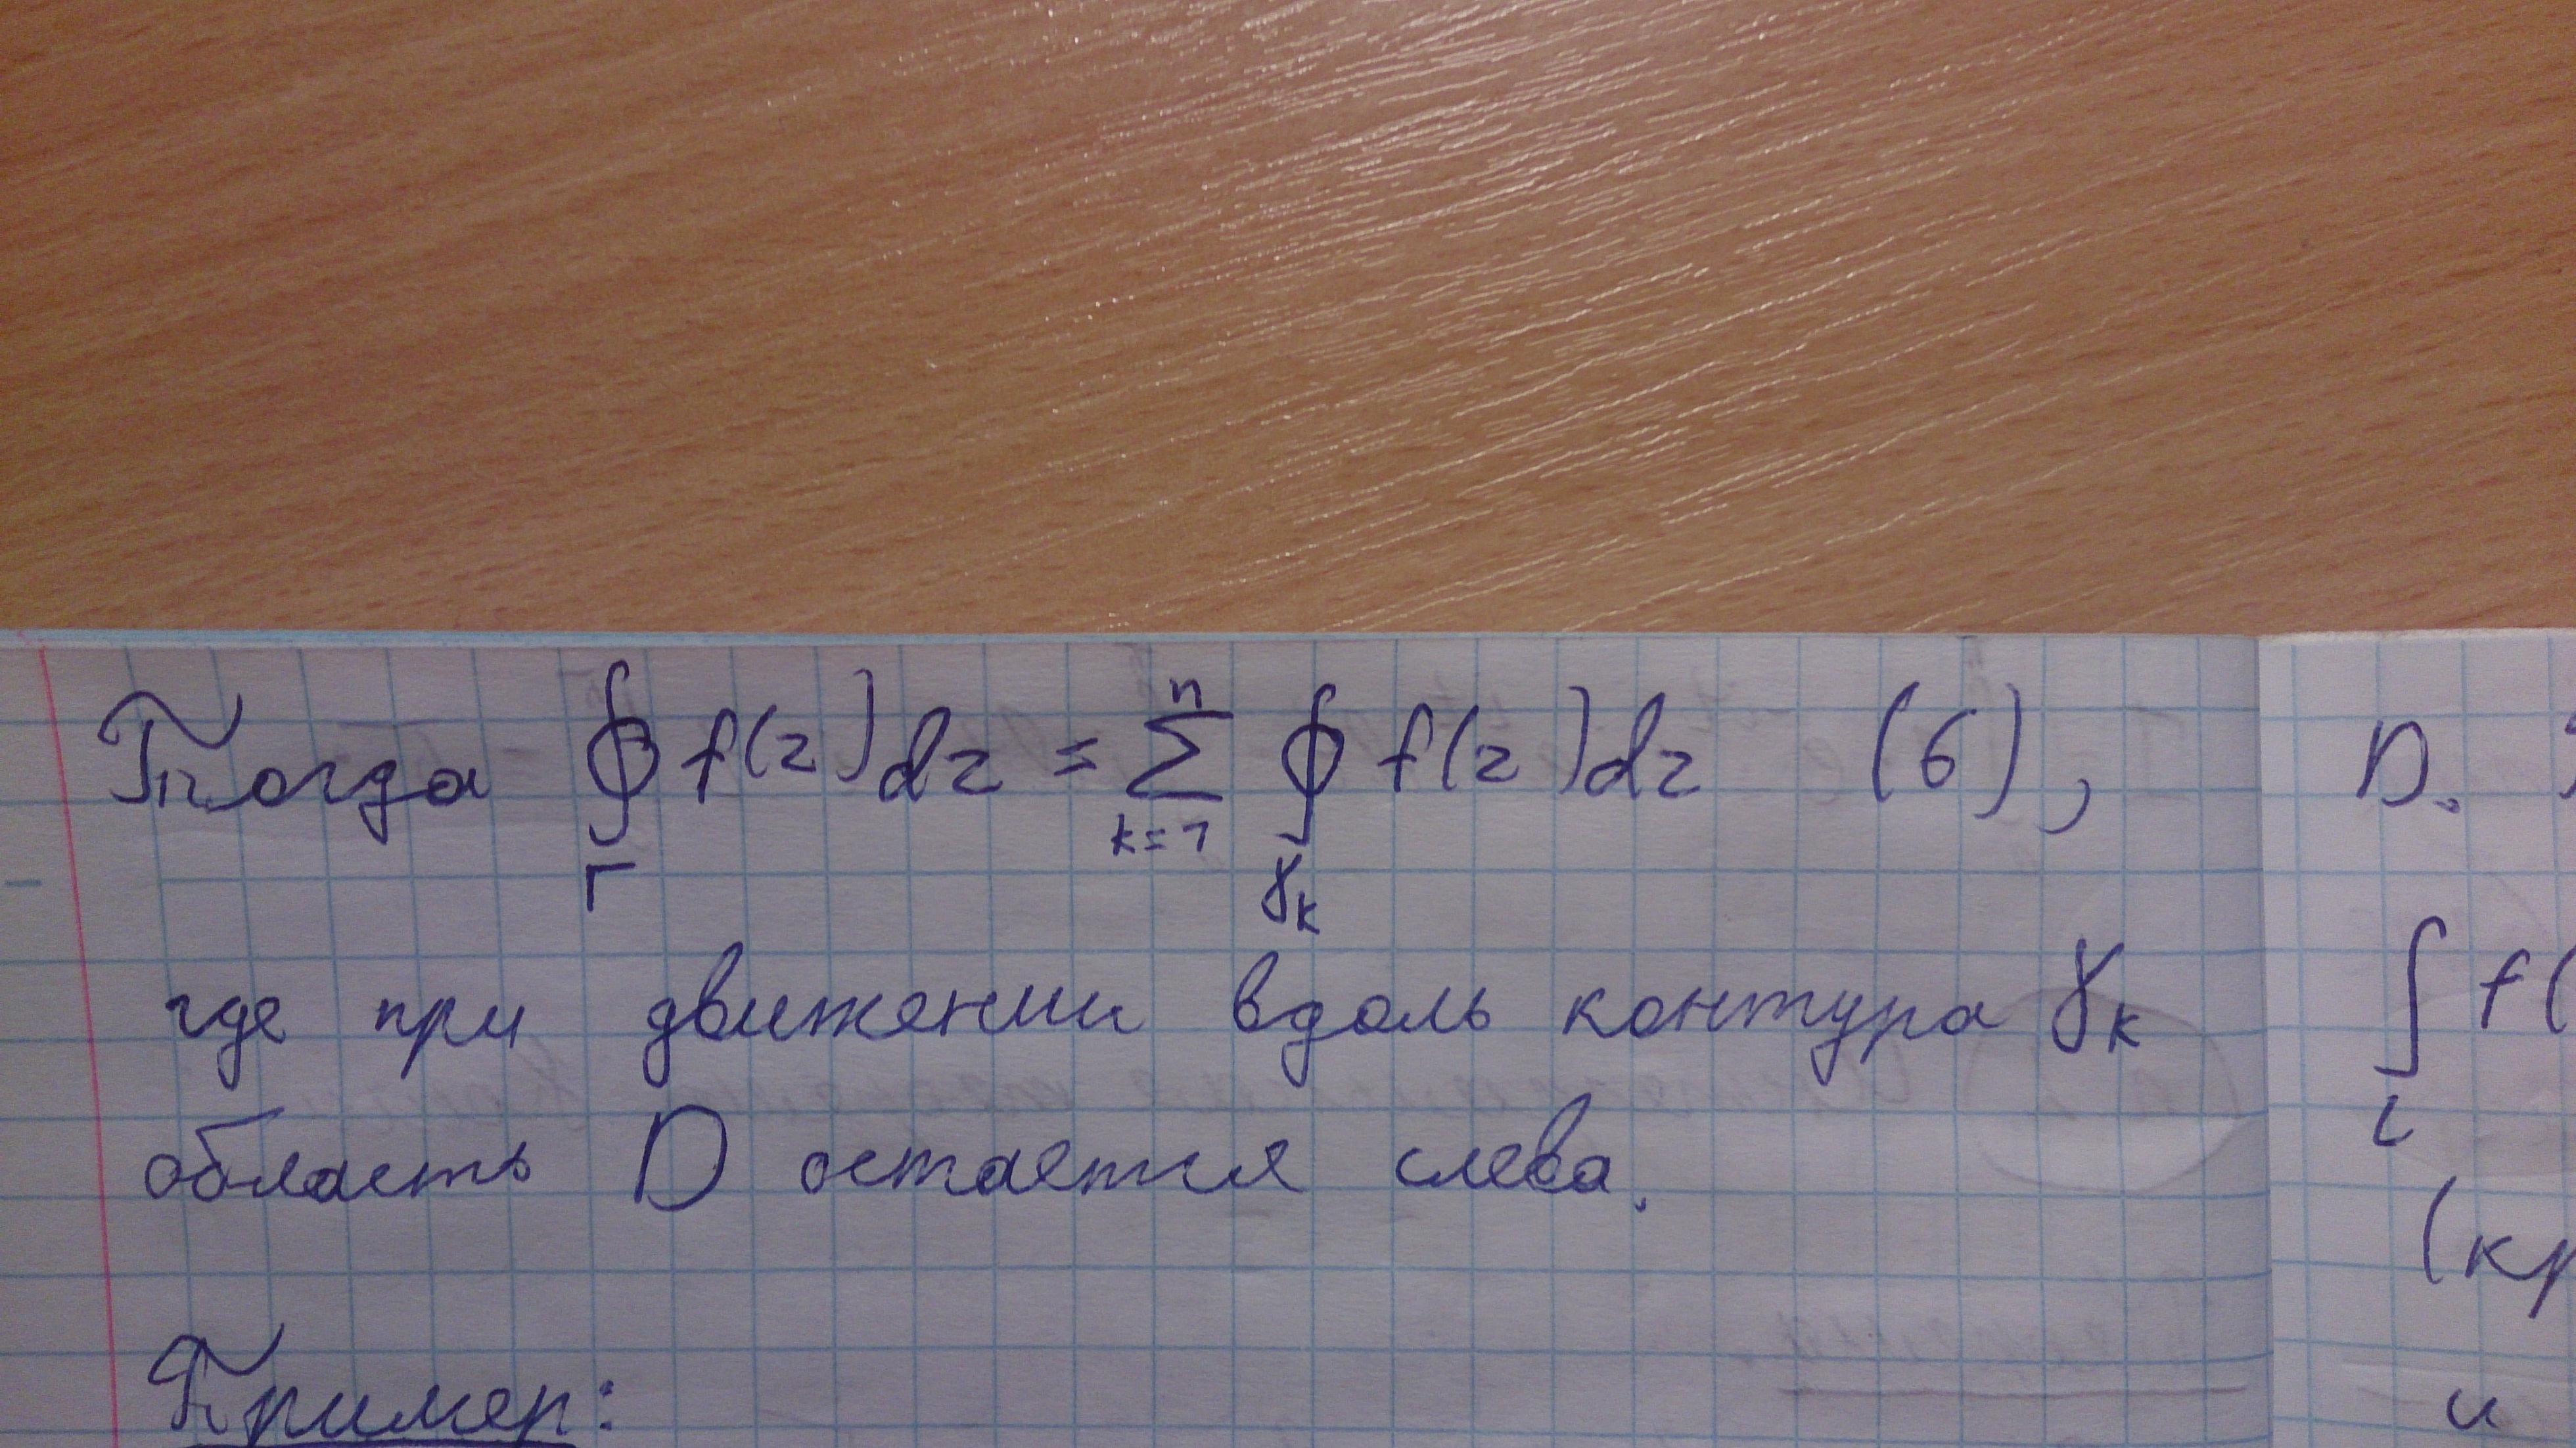 Тогда ∮_Γ f(z)dz = ∑_{k=1}^{n} ∮_{γ_k} f(z)dz (6),
где при движении вдоль контура γ_k
область D остается слева.
Пример:
D.
∫_L f(
(кр
и